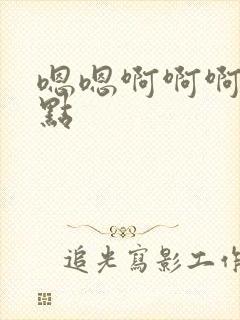 嗯嗯啊啊啊
點
追光寫影工作